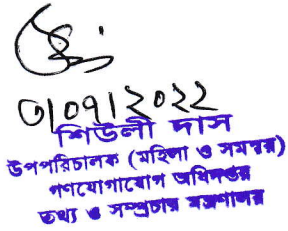 ৩১/০৭/২০২২
শিউলী দাস
উপপরিচালক (মহিলা ও সমন্বয়)
গণযোগাযোগ অধিদপ্তর
তথ্য ও সম্প্রচার মন্ত্রণালয়